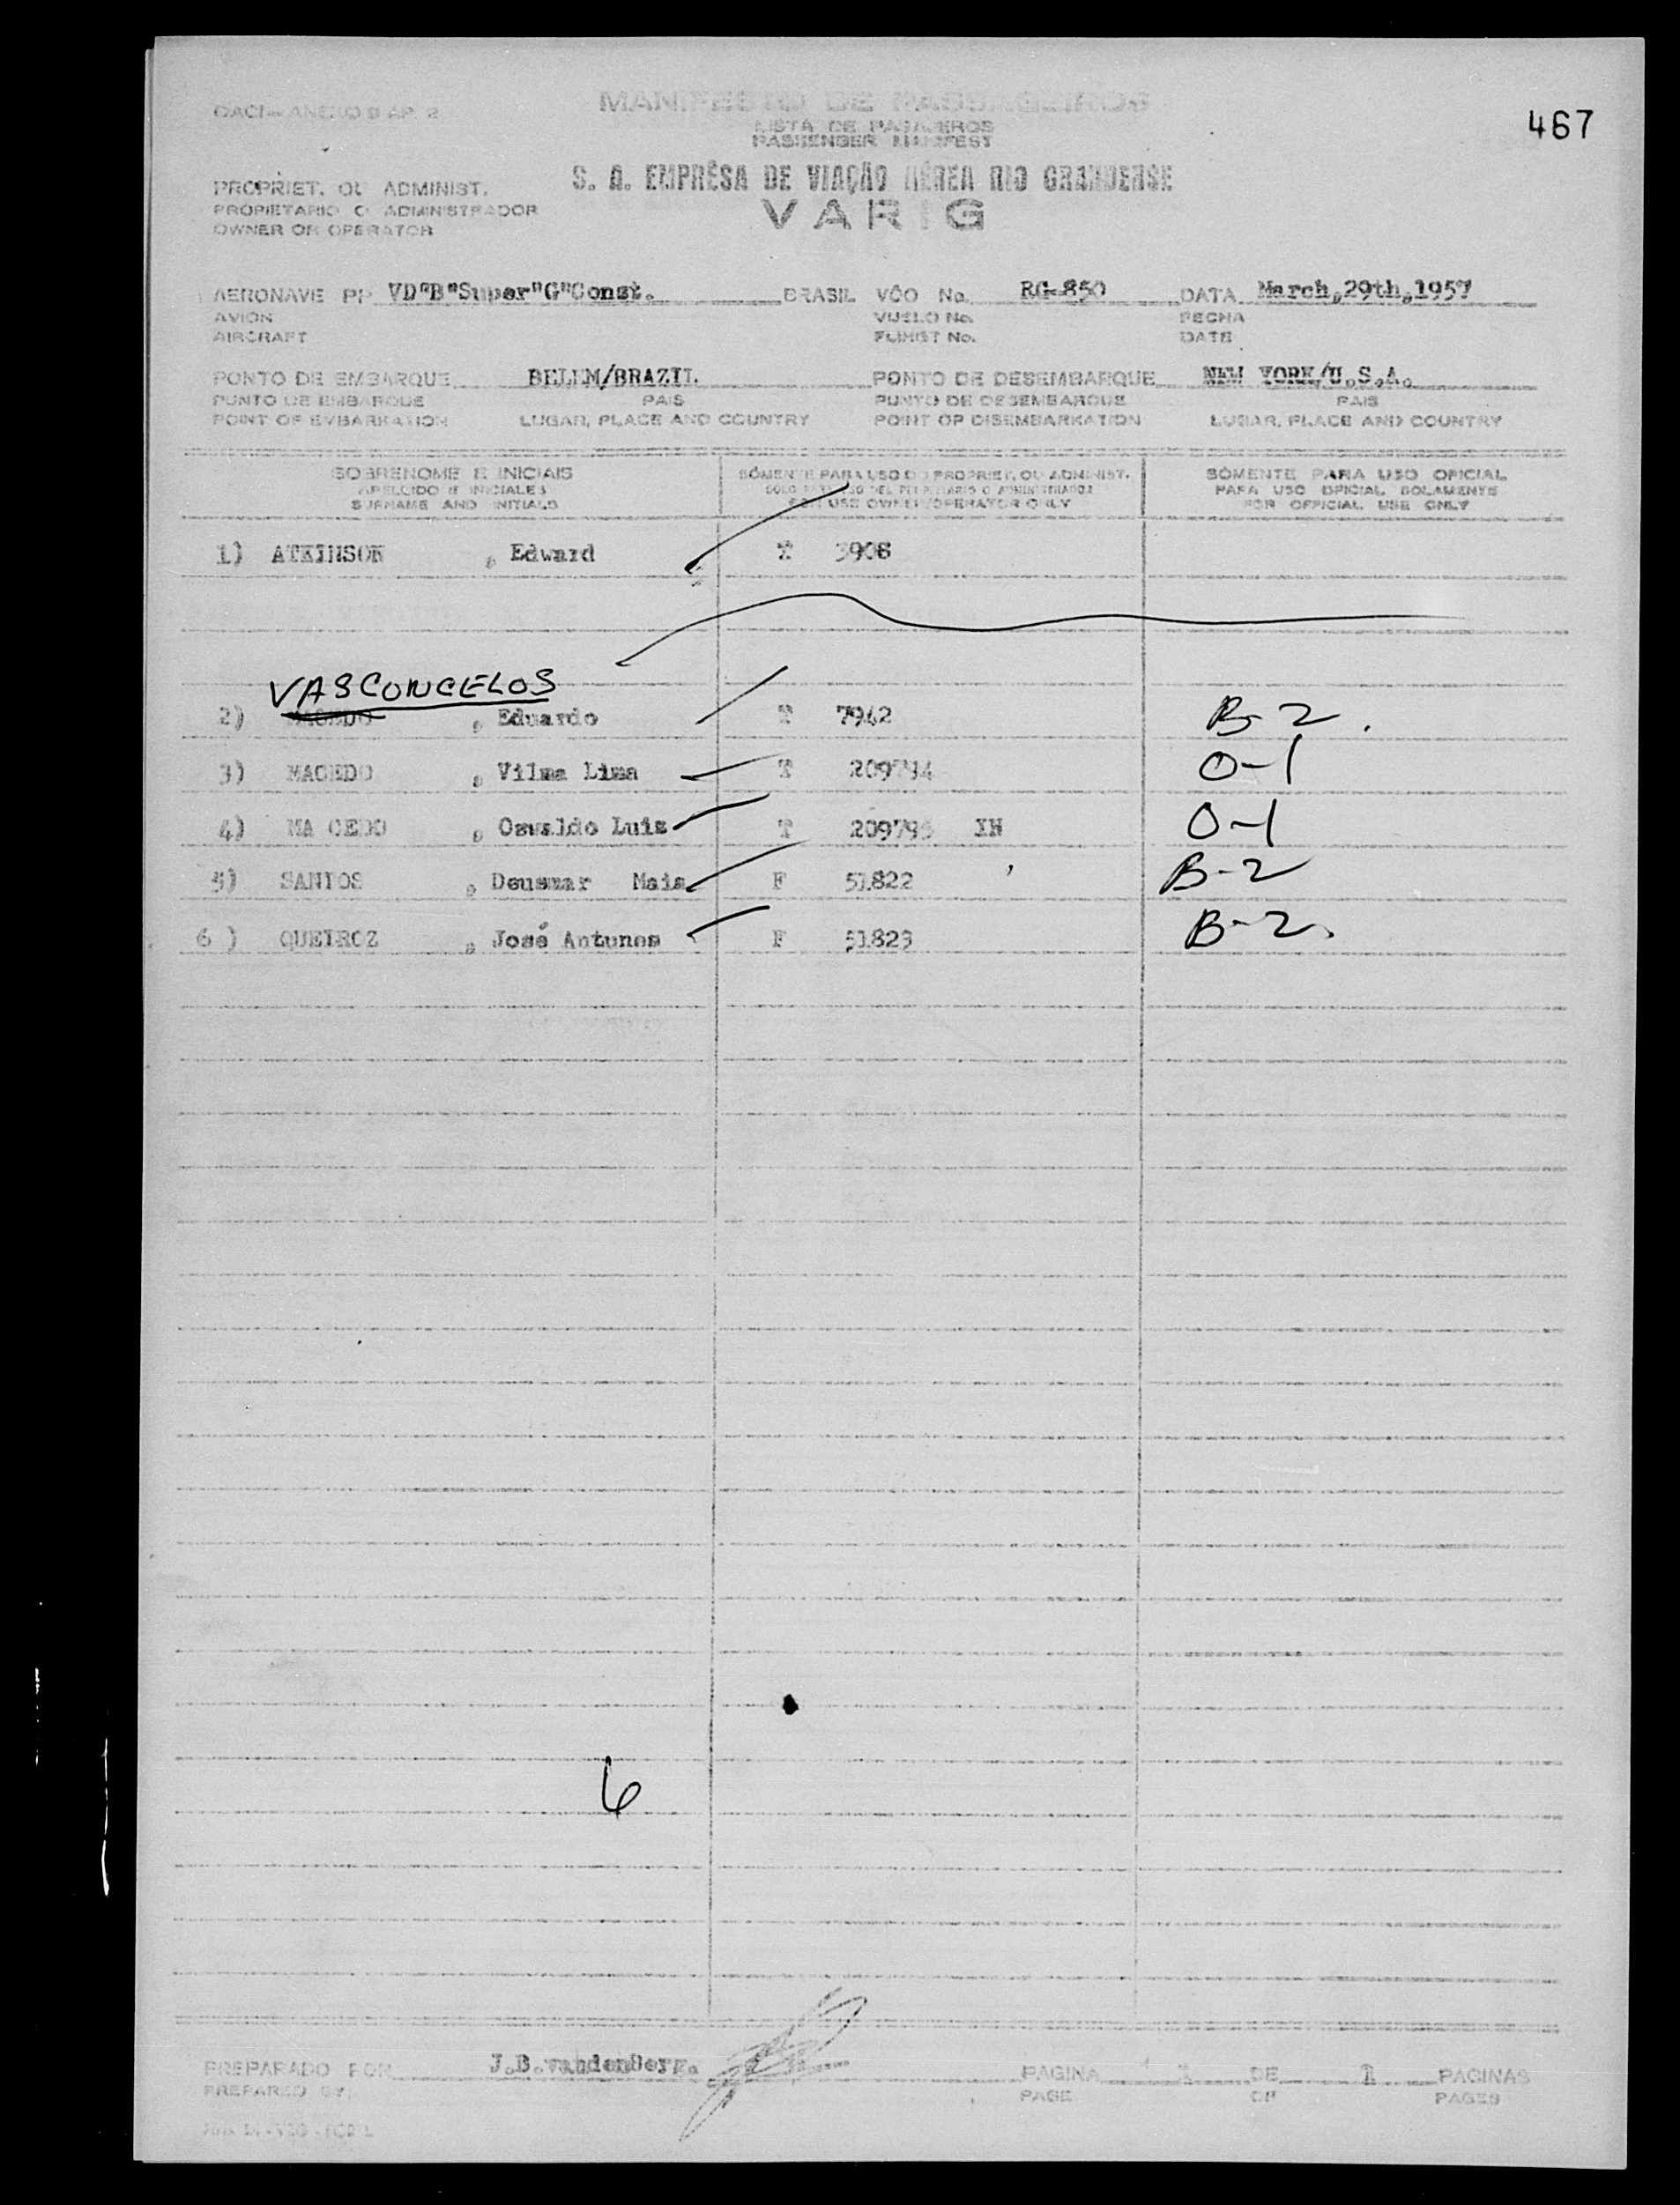 OACI - ANEXO 9 AP. 2
MANIFESTO DE PASSAGEIROS
LISTA DE PASAJEROS
PASSENGER MANIFEST
467
S. A. EMPRÊSA DE VIAÇÃO AÉREA RIO GRANDENSE
VARIG
PROPRIET. OU ADMINIST.
PROPIETARIO O ADMINISTRADOR
OWNER OR OPERATOR
AERONAVE PP VD"B"Super"G"Const. BRASIL VÔO No. RG-850 DATA March,29th,1957
AVION VUELO No. FECHA
AIRCRAFT FLIHIST No. DATE
PONTO DE EMBARQUE BELEM/BRAZIL PONTO DE DESEMBARQUE NEW YORK/U.S.A.
PUNTO DE EMBARQUE PAIS PUNTO DE DESEMBARQUE PAIS
POINT OF EMBARKATION LUGAR, PLACE AND COUNTRY POINT OF DISEMBARKATION LUGAR, PLACE AND COUNTRY
SOBRENOME E INICIAIS SÒMENTE PARA USO DO PROPRIET. OU ADMINIST. SÒMENTE PARA USO OFICIAL
APELLIDO E INICIALES SOLO PARA USO DEL PROPIETARIO O ADMINISTRADOR PARA USO OFICIAL SOLAMENTE
SURNAME AND INITIALS FOR USE OWNER/OPERATOR ONLY FOR OFFICIAL USE ONLY
1) ATKINSON , Edward T 3908
VASCONCELOS
2) MACEDO , Eduardo T 7942 B-2.
3) MACEDO , Vilma Lima T 209794 O-1
4) MA CEDO , Osvaldo Luis T 209795 IN O-1
5) SANTOS , Deusmar Maia F 51822 B-2
6 ) QUEIROZ , José Antunes F 51823 B-2.
6
PREPARADO POR J.B.vandenBerg. PAGINA 1 DE 1 PAGINAS
PREPARED BY. PAGE OF PAGES